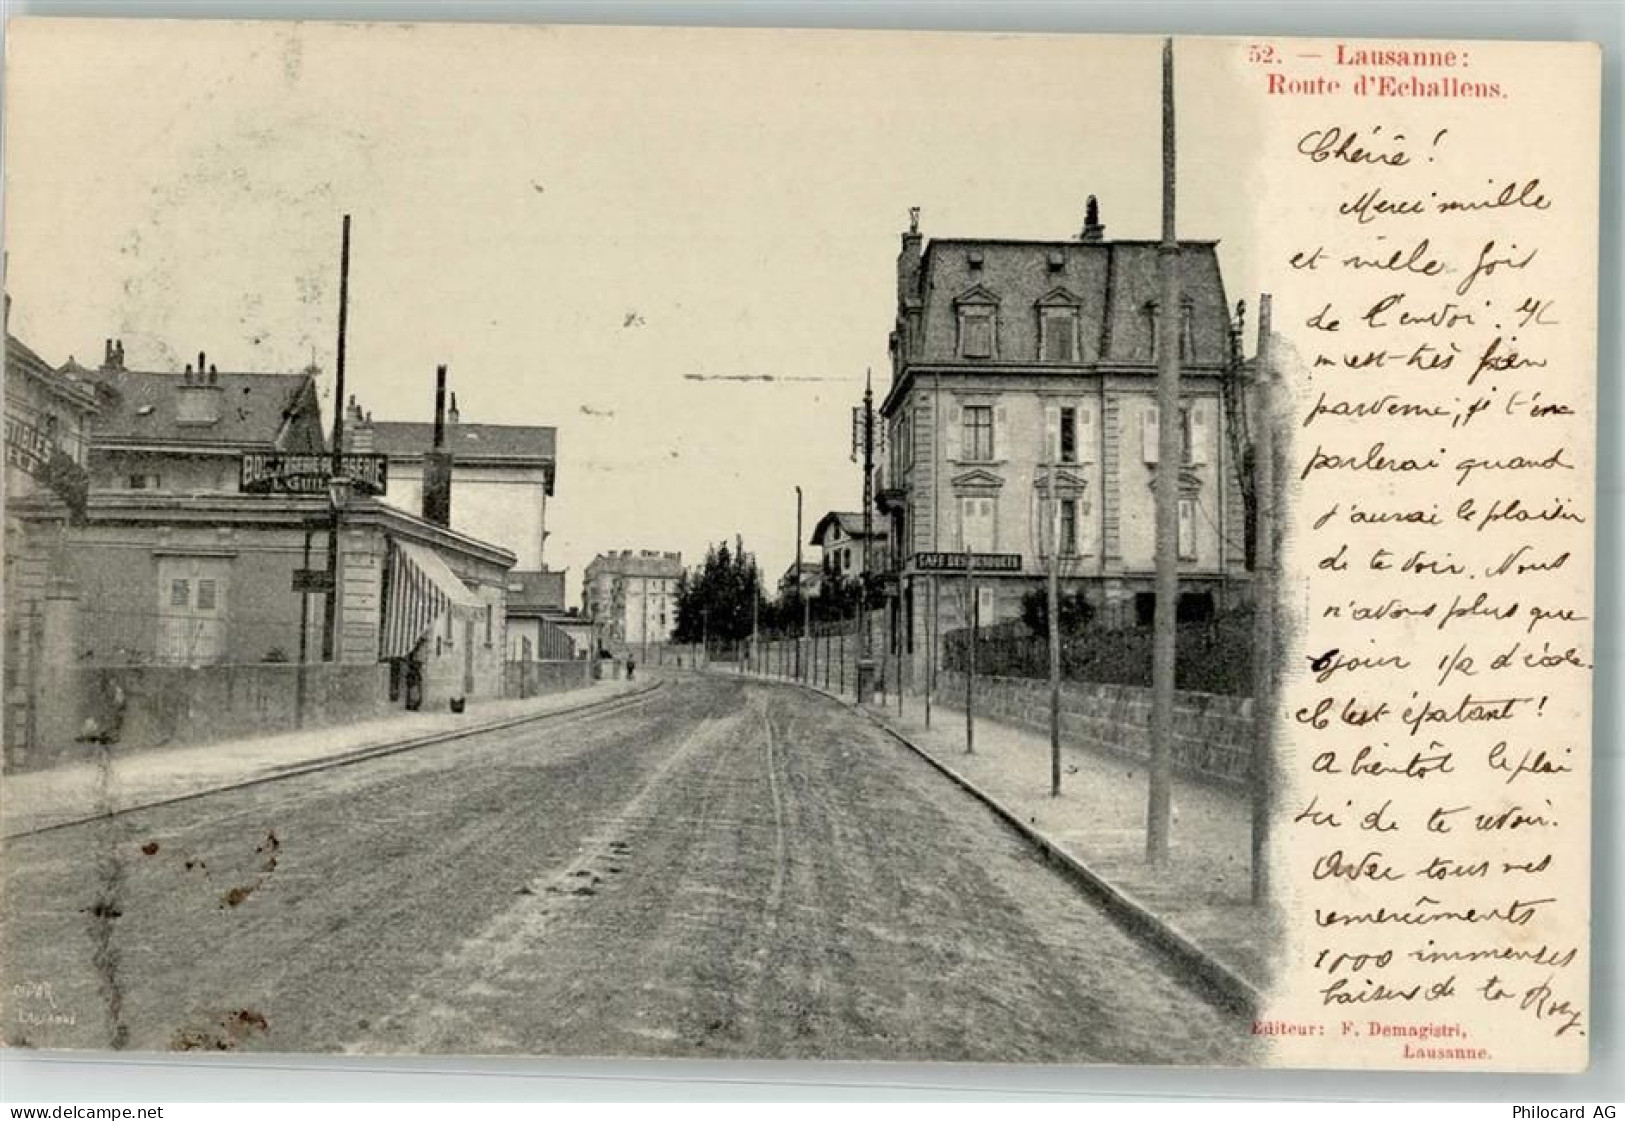 52. — Lausanne:
Route d'Echallens.
Chérie!
Merci mille
et mille fois
de l'envoi. Il
m'est très bien
parvenu, je t'en
parlerai quand
j'aurai le plaisir
de te voir. Nous
n'avons plus que
jour 1/2 d'école.
C'est épatant!
A bientôt le plai
sir de te revoir.
Avec tous mes
remerciments
1000 immenses
baisers de ta
CAFE DES
Lausanne
Editeur: F. Demagistri,
Lausanne.
www.delcampe.net
Philocard AG